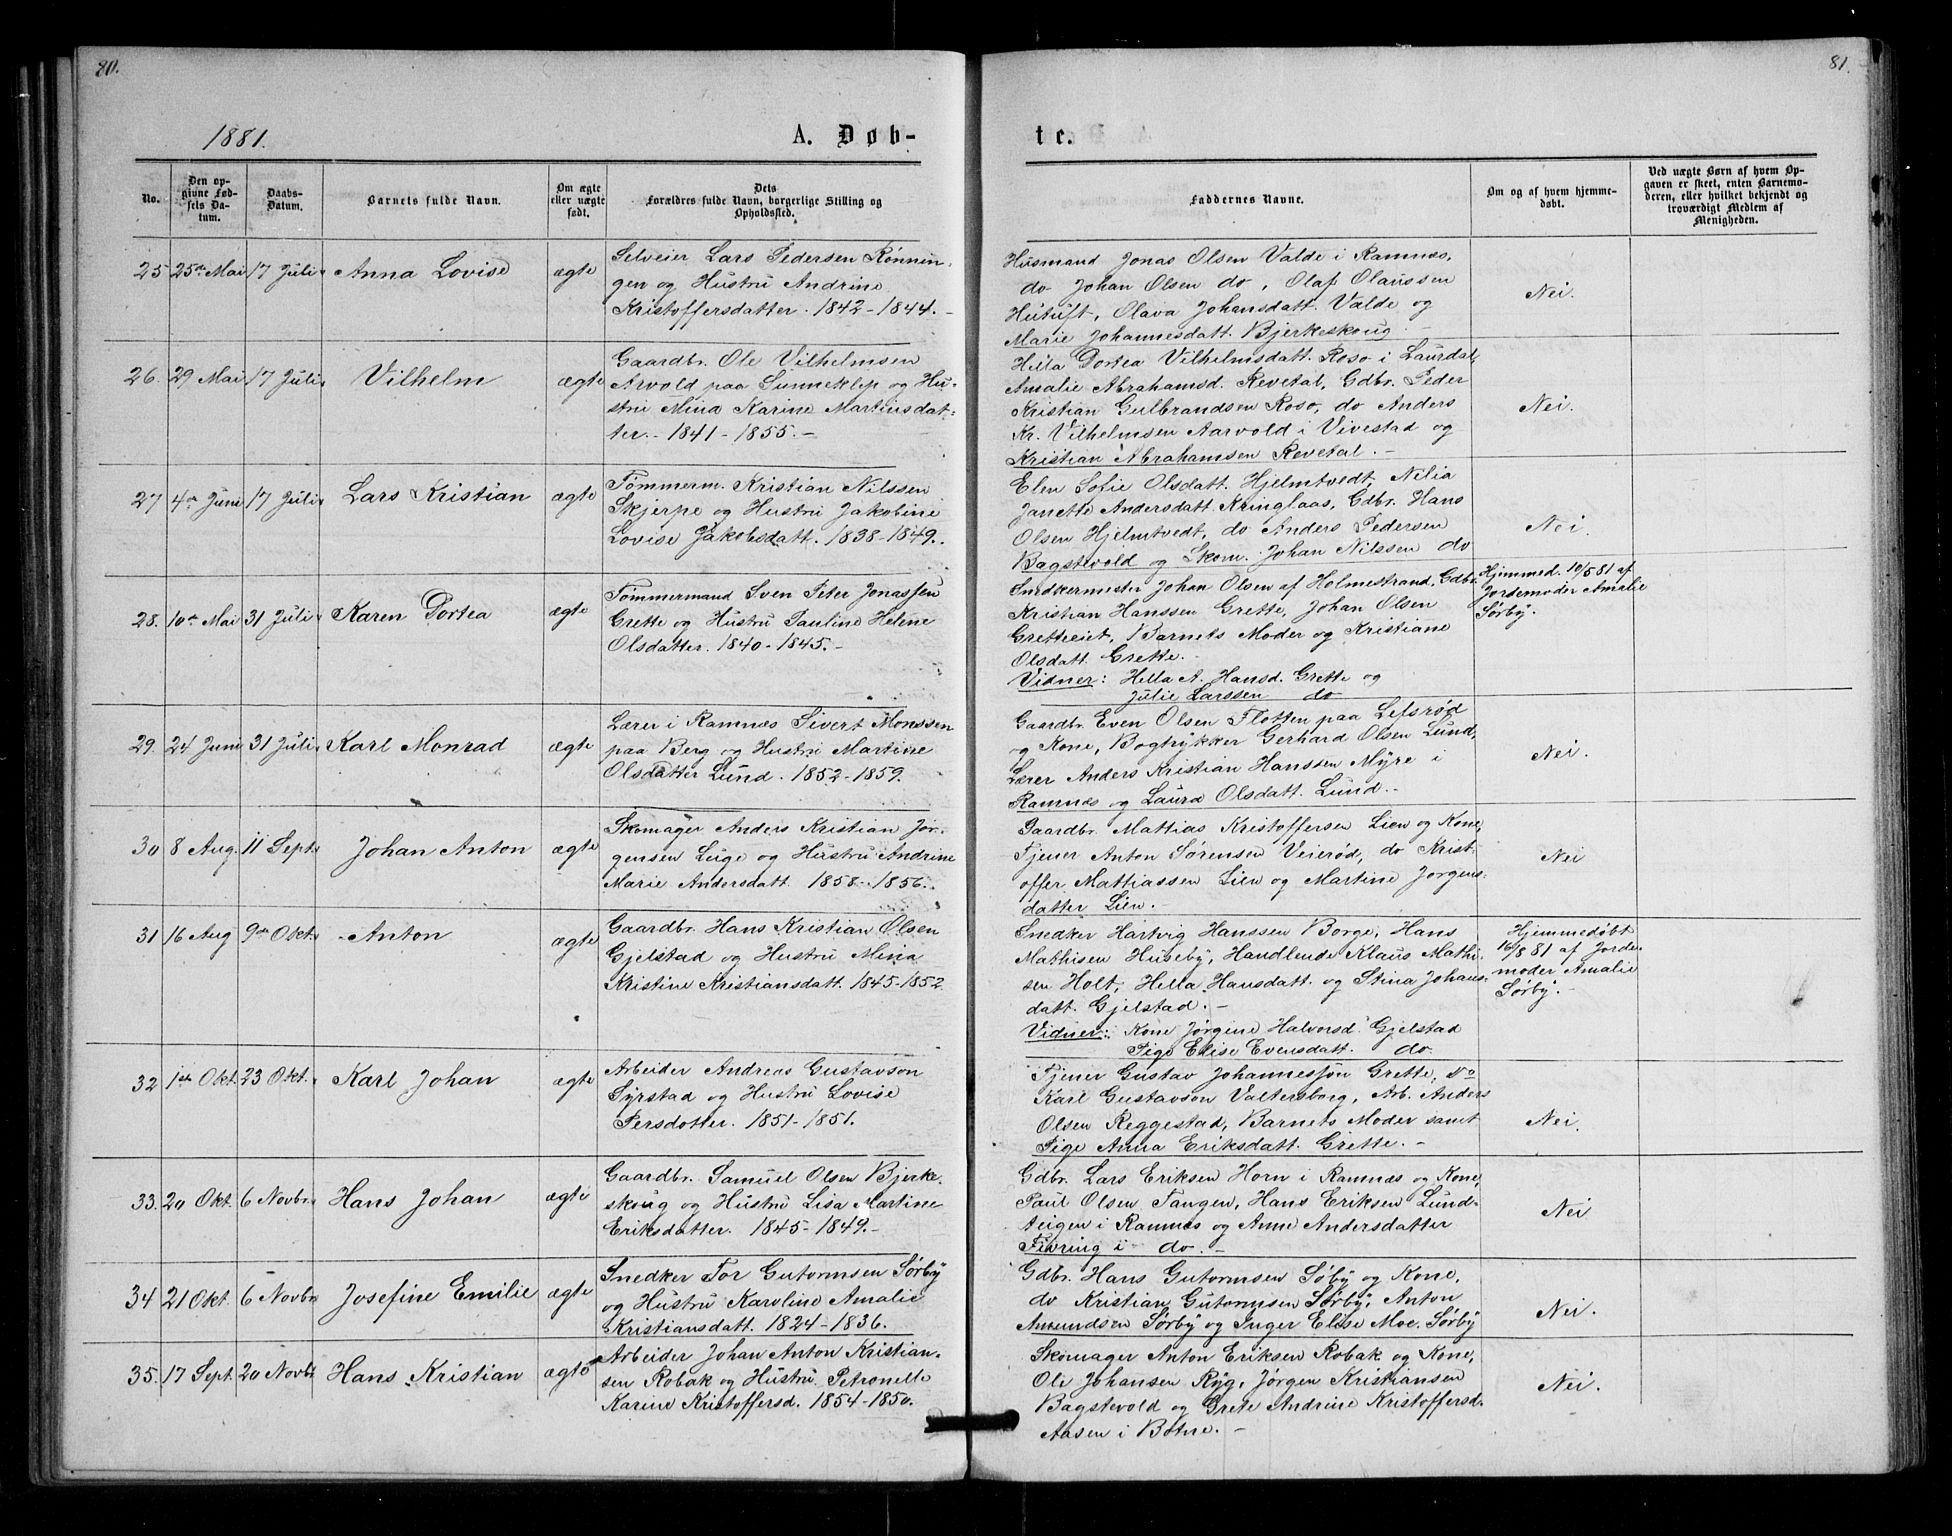 80.
1881.
A. Døb-
No.
Den op-
givne Fød-
sels Da-
tum.
Daabs-
Datum.
Barnets fulde Navn.
Om ægte
eller uægte
født.
Dets
Forældres fulde Navn, borgerlige Stilling og
Opholdssted.
25 25de Mai 17 Juli Anna Lovise ægte
Selveier Lars Pedersen Rønnin-
gen og Hustru Andrine
Kristoffersdatter. 1842-1844.-
26. 29 Mai 17 Juli Vilhelm ægte
Gaardbr. Ole Vilhelmsen
Arvold paa Sunneklep og Hu-
stru Mina Karine Martinsdat-
ter.- 1841-1855.-
27 4de Juni 17 Juli Lars Kristian ægte
Tømmerm. Kristian Nilssen
Skjerpe og Hustru Jakobine
Lovise Jakobsdatt. 1838-1849.
28. 10de Mai 31 Juli Karen Dortea ægte
Tømmermand Sven Peter Jonassen
Grette og Hustru Pauline Helene
Olsdatter. 1840-1845.-
29. 24 Juni 31 Juli Karl Monrad ægte
Lærer i Ramnæs Sivert Monssen
paa Berg og Hustru Martine
Olsdatter Lund. 1852-1859.
30 8 Aug. 11 Sept. Johan Anton ægte
Skomager Anders Kristian Jør-
gensen Luge og Hustru Andrine
Marie Andersdatt. 1858-1856.
31 16 Aug 9de Okt. Anton ægte
Gaardbr. Hans Kristian Olsen
Gjelstad og Hustru Mina
Kristine Kristiansdatt. 1845-1852
32 1ste Okt. 23 Okt. Karl Johan ægte
Arbeider Andreas Gustavson
Syrstad og Hustru Lovise
Persdotter. 1851-1851.
33. 20 Okt. 6 Novbr. Hans Johan ægte
Gaardbr. Samuel Olsen Bjerke-
skoug og Hustru Lisa Martine
Eriksdatter. 1845-1849.-
34 21 Okt. 6 Novbr Josefine Emilie ægte
Snedker Tor Gutormsen Sørby
og Hustru Karoline Amalie
Kristiansdatt. 1824-1836.
35. 17 Sept. 20 Novbr Hans Kristian ægte
Arbeider Johan Anton Kristian-
sen Robak og Hustru Petronelle
Karine Kristoffersd. 1854-1850.
81.
te.
Faddernes Navne.
Om og af hvem hjemme-
døbt.
Ved uægte Børn af hvem Op-
gaven er skeet, enten Barnemo-
deren, eller hvilket bekjendt og
troværdigt Medlem af
Menigheden.
Husmand Jonas Olsen Valde i Ramnæs,
do Johan Olsen do, Olaf Olaussen
Hutuft, Olava Johansdatt. Valde og
Marie Johannesdatt. Bjerkeskoug.-
Nei.
Hella Dortea Vilhelmsdatt. Roso i Laurdal,
Amalie Abrahamsd. Revetal, Gdbr. Peder
Kristian Gulbrandsen Roso, do Anders
Kr. Vilhelmsen Aarvold i Vivestad og
Kristian Abrahamsen Revetal.-
Nei.
Elen Sofie Olsdatt. Hjelmtvedt, Nilia
Janette Andersdatt. Kringlaas, Gdbr. Hans
Olsen Hjelmtvedt, do Anders Pedersen
Bagstevold og Skom. Johan Nilssen do
Nei.
Snedkermester Johan Olsen af Holmestrand, Gdbr.
Kristian Hanssen Grette, Johan Olsen
Gretteeiet, Barnets Moder og Kristiane
Olsdatt. Grette.-
Vidner: Hella A. Hansd. Grette og
Julie Larssen do
Hjemmed. 10/5 81 af
Jordemoder Amalie
Sørby.
Gaardbr. Even Olsen Flotten paa Lefsrød
og Kone, Bogtrykker Gerhard Olsen Lund,
Lærer Anders Kristian Hanssen Myre i
Ramnæs og Laura Olsdatt. Lund.-
Nei.
Gaardbr. Mattias Kristoffersen Lien og Kone,
Tjener Anton Sørensen Veierød, do Krist-
offer Mattiassen Lien og Martine Jørgens-
datter Lien.-
Nei
Snedker Hartvig Hanssen Borge, Hans
Mathisen Huseby, Handlende Klaus Mathi-
sen Holt, Hella Hansdatt. og Stina Johans-
datt. Gjelstad.-
Vidner: Kone Jørgine Halvorsd. Gjelstad
Pige Elise Evensdatt. do
Hjemmedøbt
16/8 81 af Jorde-
moder Amalie
Sørby.-
Tjener Gustav Johannesson Grette, do
Karl Gustavson Valtersborg, Arb. Anders
Olsen Reggestad, Barnets Moder samt
Pige Anna Eriksdatt. Grette.-
Nei.
Gdbr. Lars Eriksen Horn i Ramnæs og Kone,
Paul Olsen Tangen, Hans Eriksen Lund-
teigen i Ramnæs og Anne Andersdatter
Fivring i do.-
Nei
Gdbr. Hans Gutormsen Søby og Kone,
do Kristian Gutormsen Sørby, Anton
Amundsen Sørby og Inger Elise Moe. Sørby
Nei.
Skomager Anton Eriksen Robak og Kone,
Ole Johansen Ryg, Jørgen Kristiansen
Bagstevold og Grete Andrine Kristoffersd.
Aasen i Botne.-
Nei.